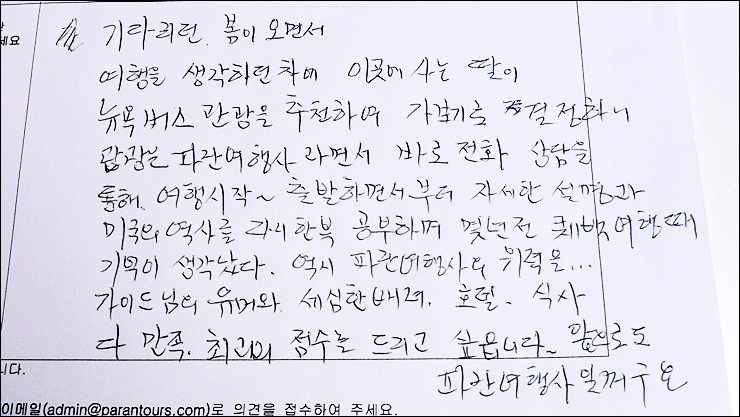 기다리던 봄이 오면서
여행을 생각하던차에 이곳에 사는 딸이
뉴욕버스 관광을 추천하여 가보기로 결정하니
관광은 파란여행사 라면서 바로 전화 상담을
통해, 여행시작~ 출발하면서부터 자세한 설명과
미국의 역사를 다시한북 공부하며 몇년전 퀘백여행때
기억이 생각났다. 역시 파란여행사의 위력을...
가이드님의 유머와 세심한배려, 호텔, 식사
다 만족. 최고의 점수를 드리고 싶읍니다~ 앞으로도
파란여행사일꺼구요
세요
니다.
이메일(admin@parantours.com)로 의견을 접수하여 주세요.